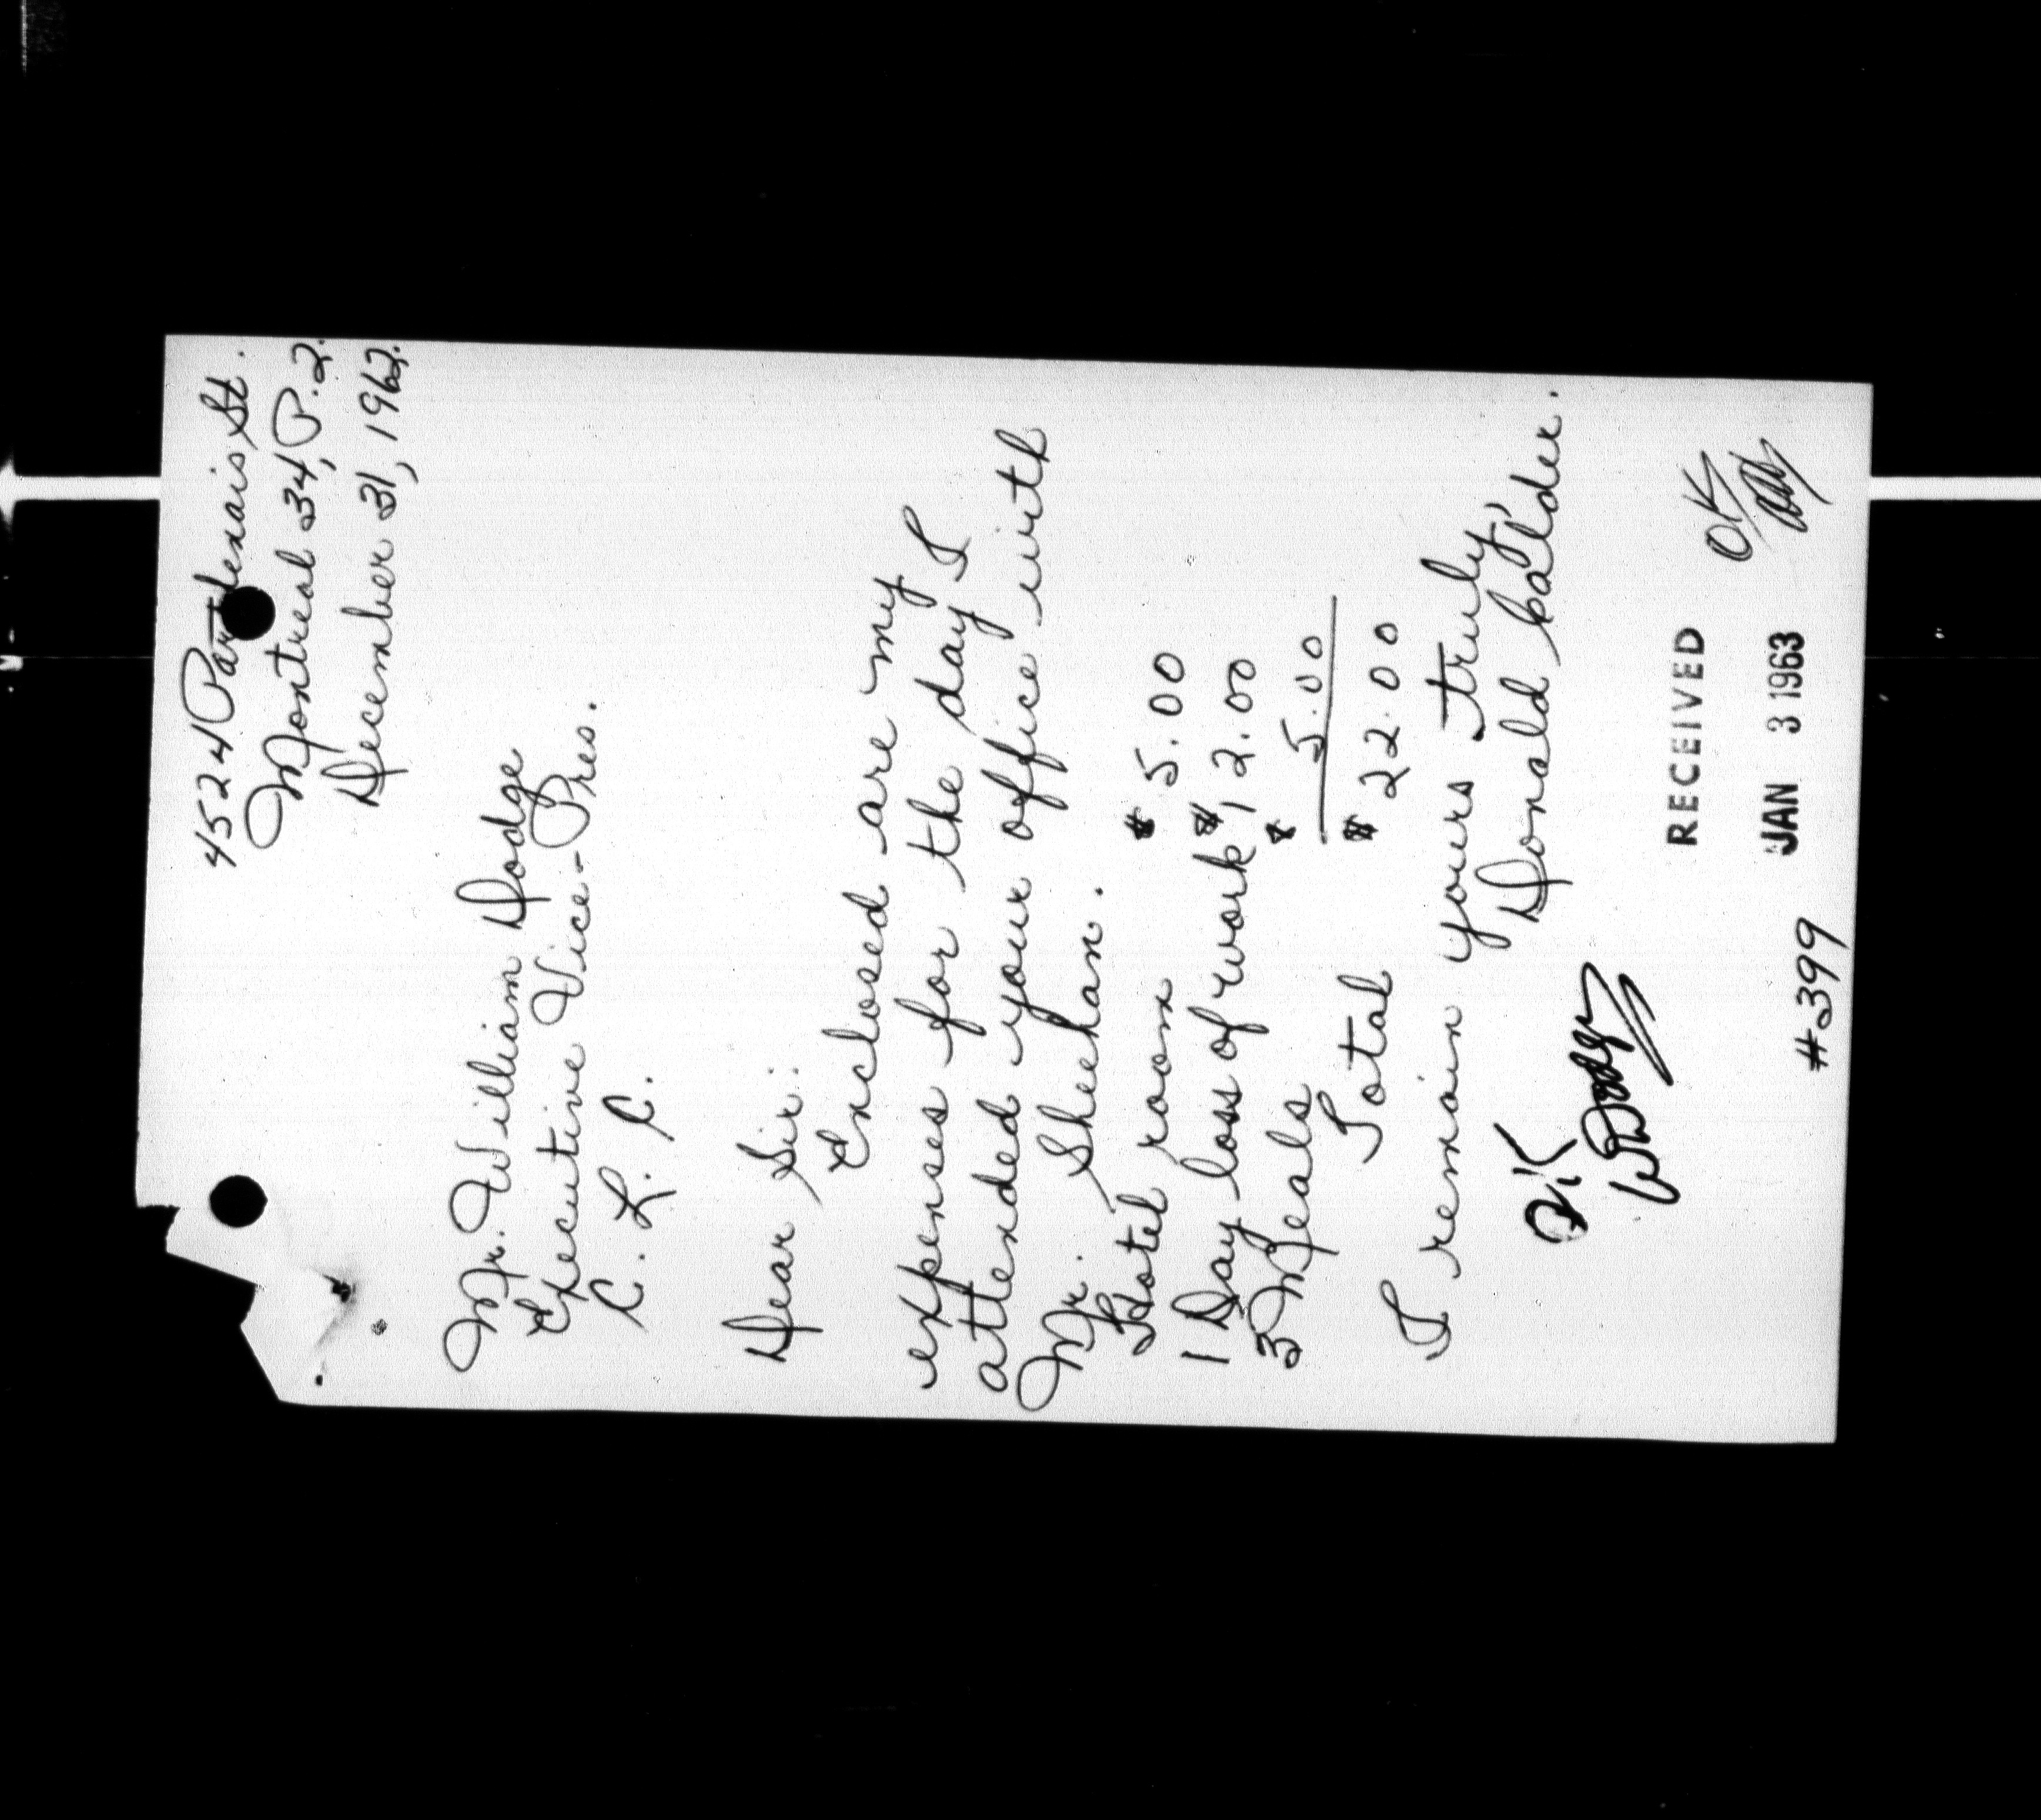 4524 Parthenais St.
Montreal 34, P.Q.
December 31, 1962.
Mr. William Dodge
Executive Vice-Pres.
C. L. C.
Dear Sir:
Enclosed are my
expenses for the day I
attended your office with
Mr. Sheehan.
Hotel room $ 5.00
1 Day loss of work $ 12.00
3 Meals $ 5.00
Total $ 22.00
I remain yours truly,
Donald Calder.
OK
WDodge
RECEIVED
JAN 3 1963
OK
#399